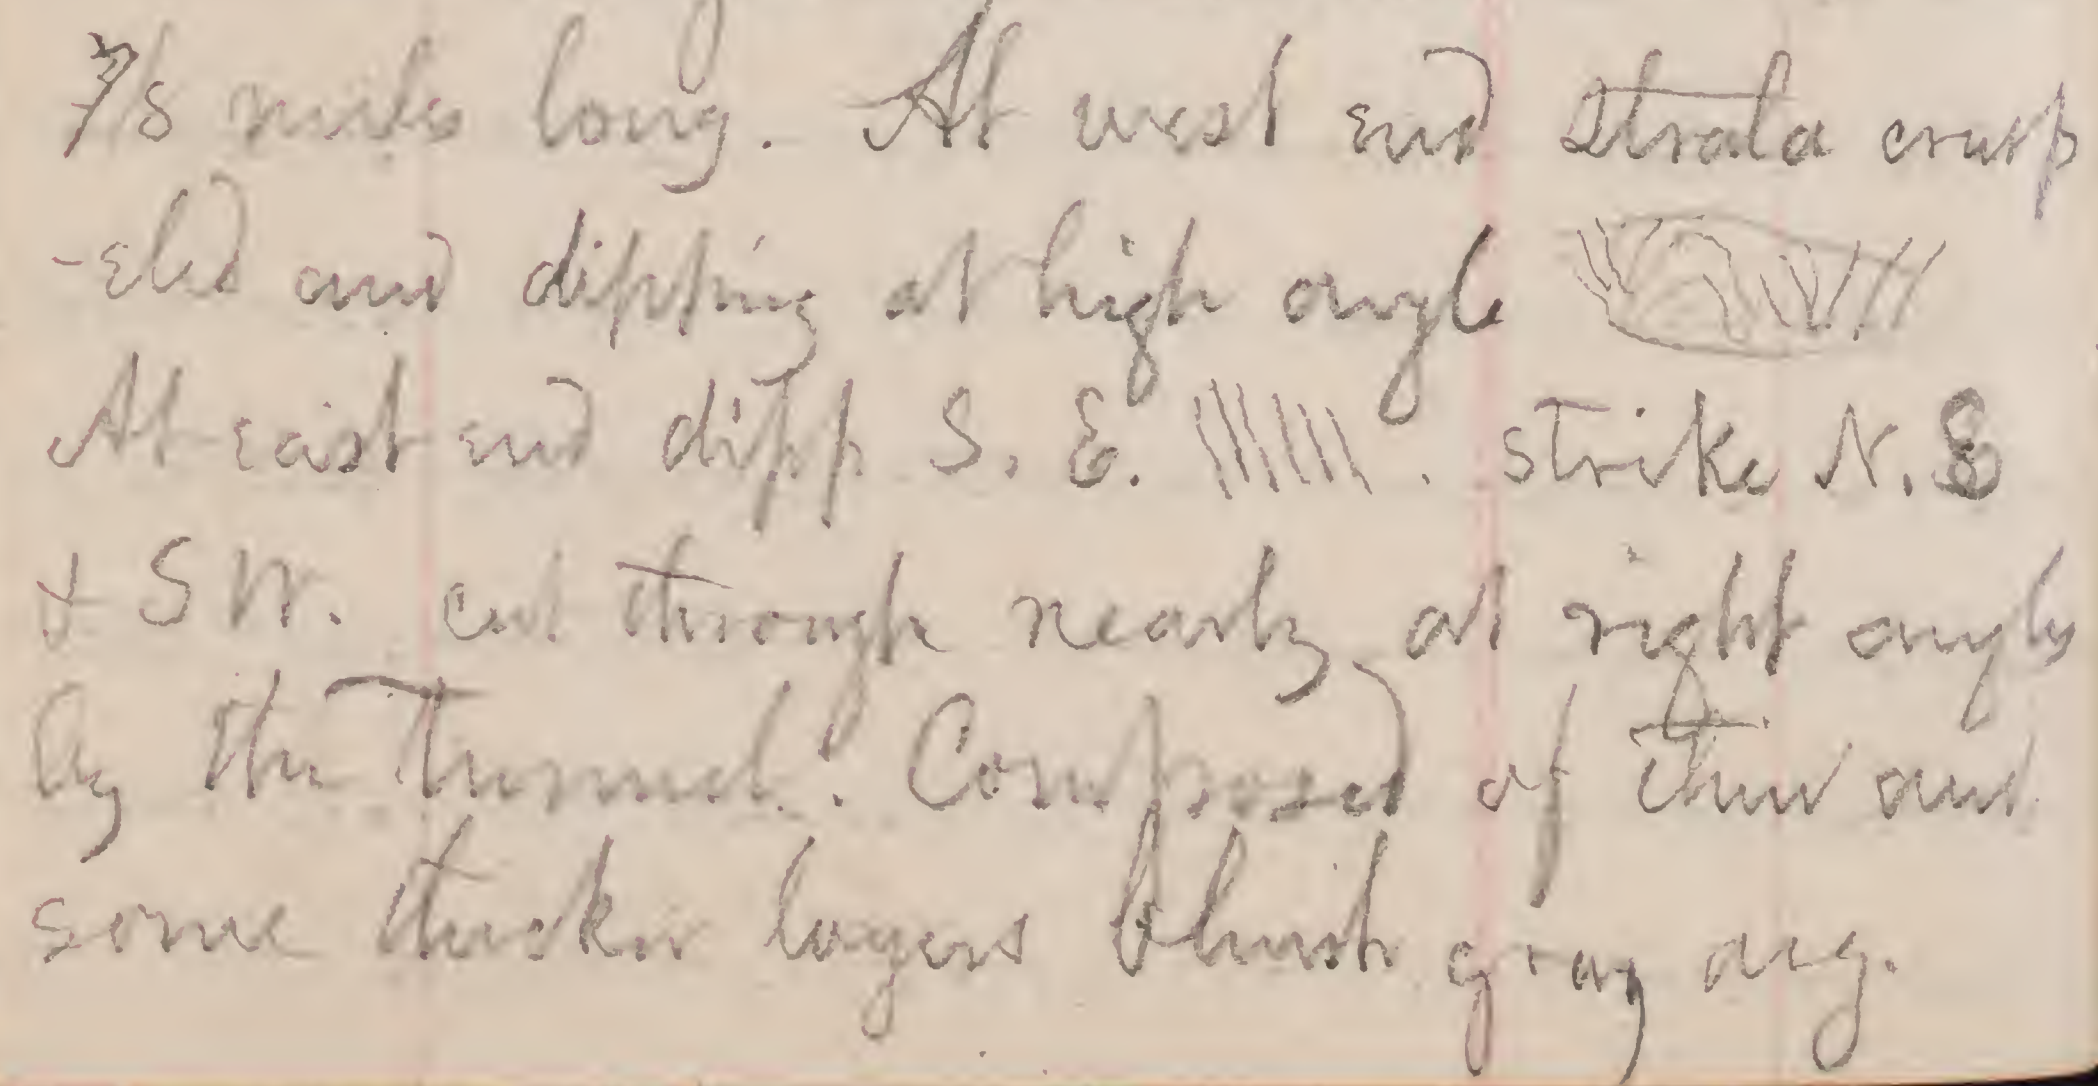 7/8 miles long. At west end strata crump
-eled and dipping at high angle
At east end dipp S. E. . strike N. E
& S W. cut through nearly at right angles
by the Tunnel. Composed of thin and
some thicker layers bluish gray arg.